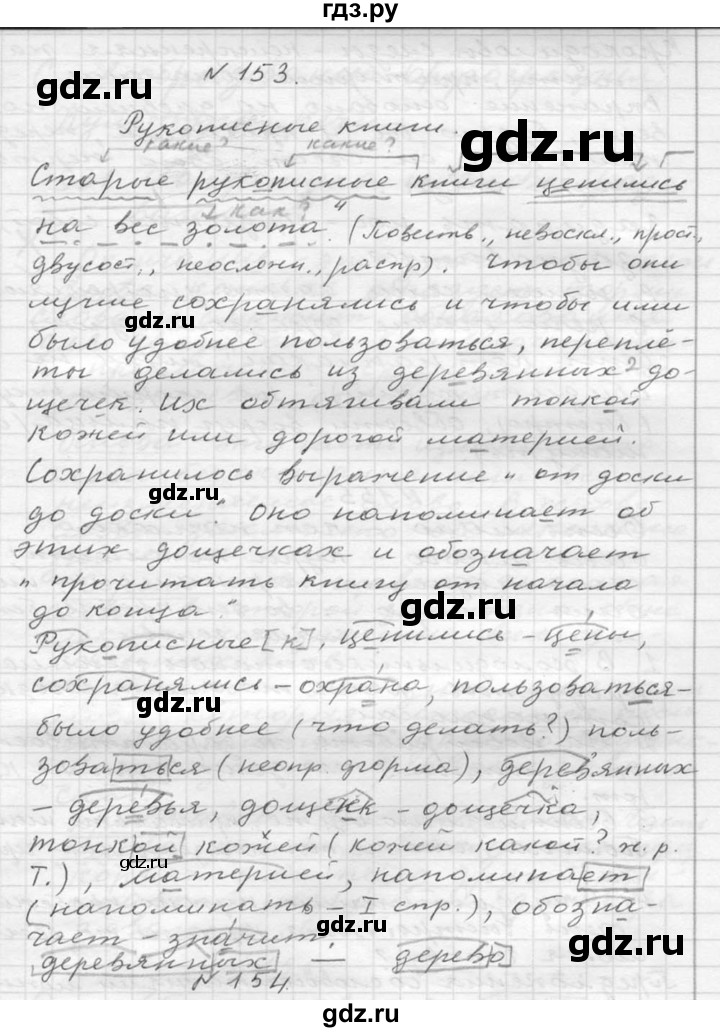 гдз.ру
N 153.
Рукописные книги.
какие? какие?
Старые рукописные книги ценились
как?
на вес золота". (Повеств., невоскл., прост.,
двусост., неослони., распр). Чтобы они
лучше сохранялись и чтобы ими
было удобнее пользоваться, переплё-
ты делались из деревянных2 до-
щечек. Их обтягивали тонкой
кожей или дорогой материей.
Сохранилось выражение „от доски
до доски". Оно напоминает об
этих дощечках и обозначает
„прочитать книгу от начала
до конца."
Рукописные [к], ценились - цены,
сохранялись - охрана, пользоваться -
было удобнее (что делать?) поль-
зоваться (неопр. форма), деревянных
- деревья, дощечк - дощечка,
тонкой кожей (кожей какой? ж.р.
Т.), материей, напоминает
(напоминать - I спр.), обозна-
чает - значит.
деревянных — дерево
N 154
gdz.ru
gdz.ru
gdz.ru
gdz.ru
gdz.ru
gdz.ru
gdz.ru
gdz.ru
gdz.ru
gdz.ru
gdz.ru
gdz.ru
gdz.ru